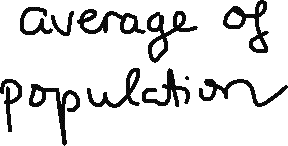 average of
population